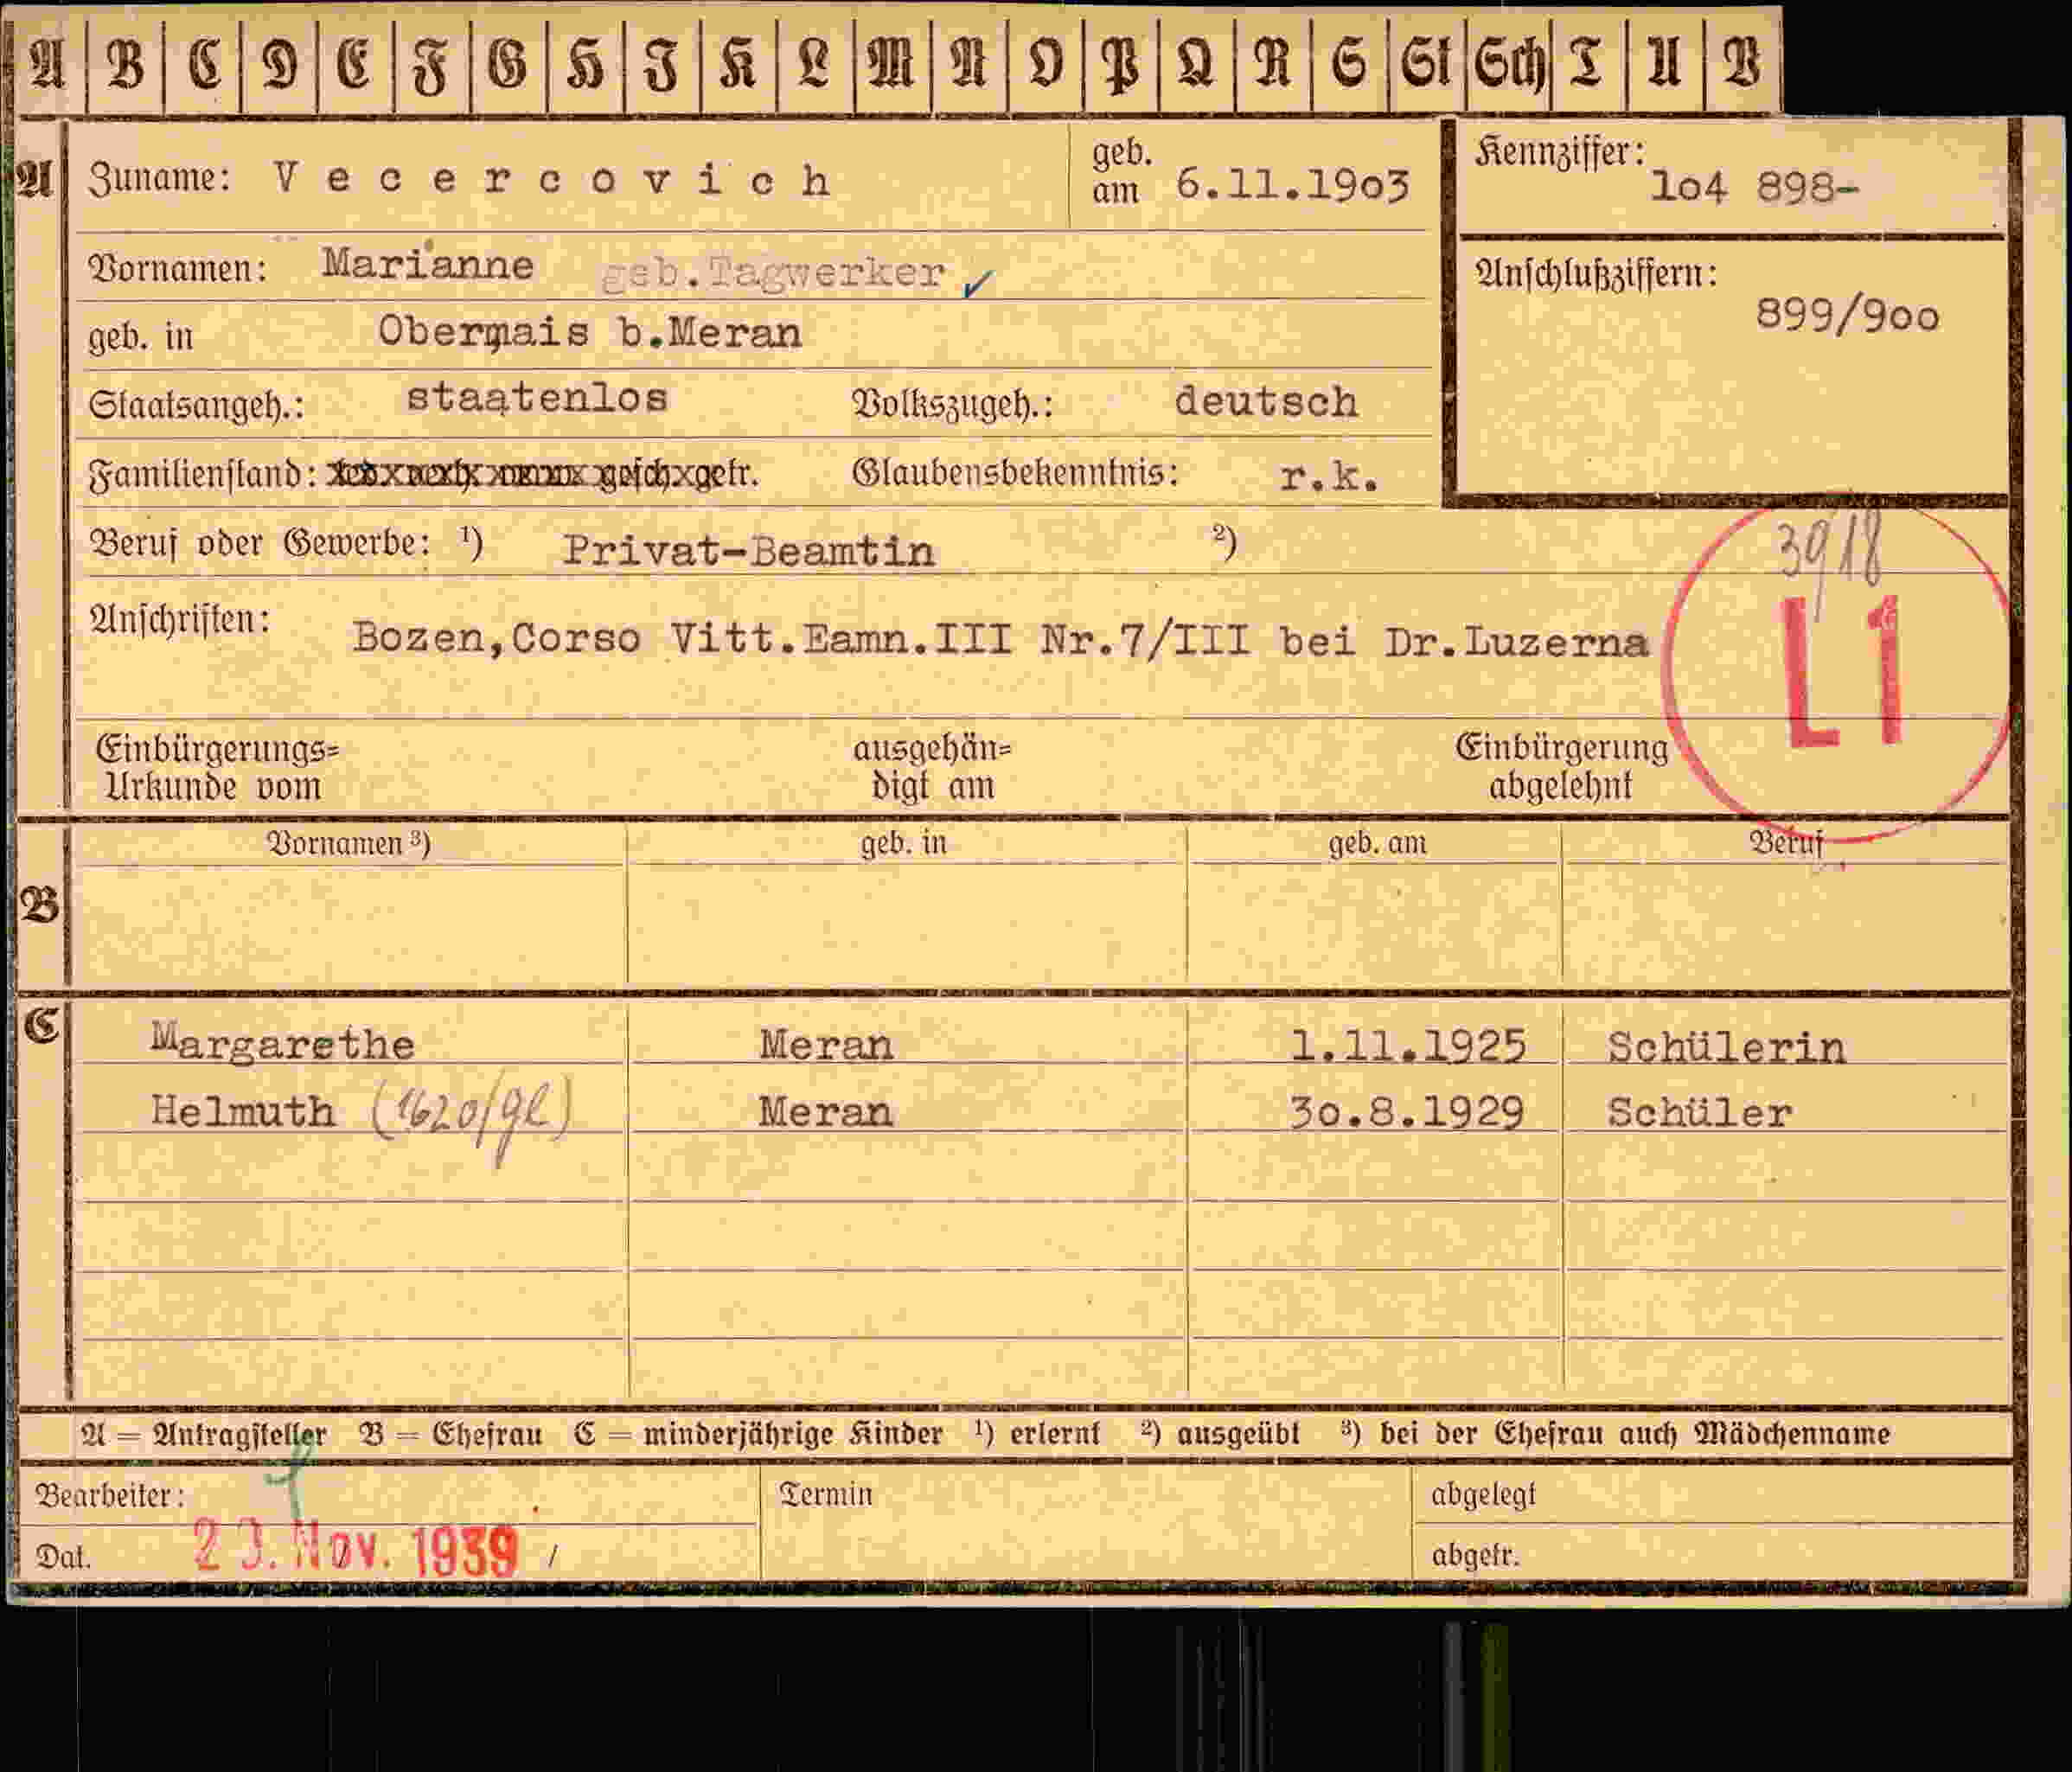 A B C D E F G H I K L M N O P Q R S St Sch T U V
A Zuname: Vecercovich geb. am 6.11.19o3 Kennziffer: 1o4 898-
Vornamen: Marianne geb.Tagwerker ✓ Anschlußziffern:
899/9oo
geb. in Obermais b.Meran
Staatsangeh.: staatenlos Volkszugeh.: deutsch
Familienstand: gesch. getr. Glaubensbekenntnis: r.k.
Beruf oder Gewerbe: ¹) Privat-Beamtin ²) 3918
Anschriften: Bozen,Corso Vitt.Eamn.III Nr.7/III bei Dr.Luzerna
L1
Einbürgerungs= Urkunde vom ausgehän= digt am Einbürgerung abgelehnt
Vornamen ³) geb. in geb. am Beruf
B
C Margarethe Meran 1.11.1925 Schülerin
Helmuth (1620/gl) Meran 3o.8.1929 Schüler
A = Antragsteller B = Ehefrau C = minderjährige Kinder ¹) erlernt ²) ausgeübt ³) bei der Ehefrau auch Mädchenname
Bearbeiter: Termin abgelegt
Dat. 23. Nov. 1939 / abgetr.